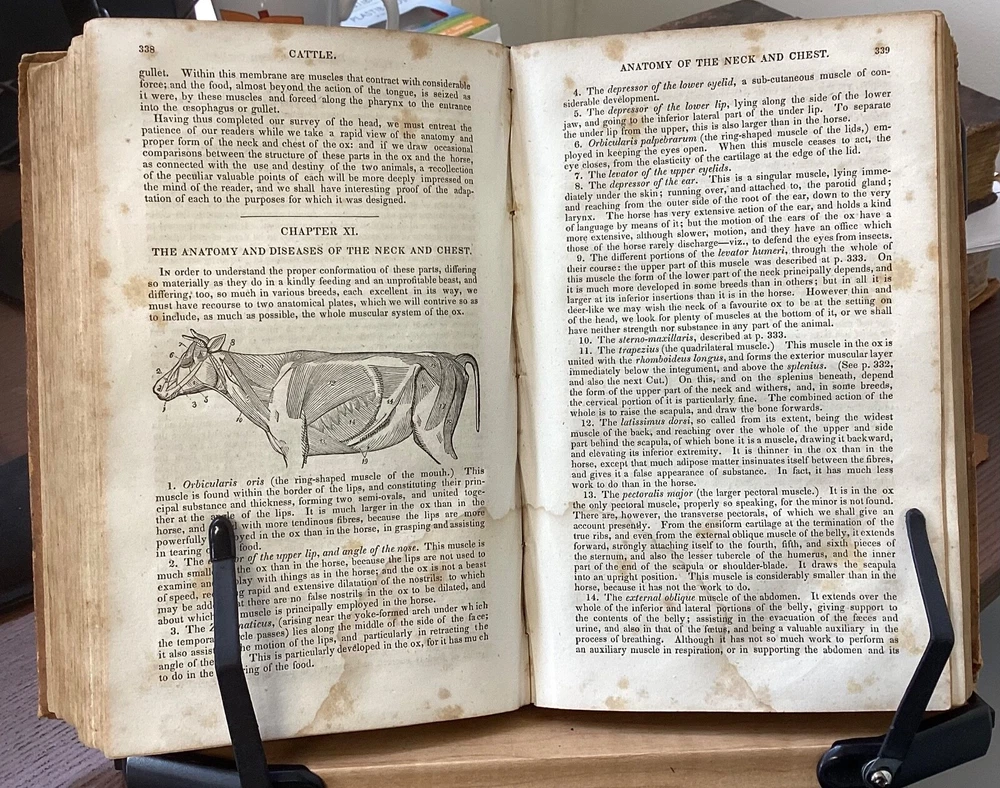 338
CATTLE.
gullet. Within this membrane are muscles that contract with considerable
force; and the food, almost beyond the action of the tongue, is seized as
it were, by these muscles and forced along the pharynx to the entrance
into the œsophagus or gullet.
Having thus completed our survey of the head, we must entreat the
patience of our readers while we take a rapid view of the anatomy and
proper form of the neck and chest of the ox: and if we draw occasional
comparisons between the structure of these parts in the ox and the horse,
as connected with the use and destiny of the two animals, a recollection
of the peculiar valuable points of each will be more deeply impressed on
the mind of the reader, and we shall have interesting proof of the adap-
tation of each to the purposes for which it was designed.
CHAPTER XI.
THE ANATOMY AND DISEASES OF THE NECK AND CHEST.
In order to understand the proper conformation of these parts, differing
so materially as they do in a kindly feeding and an unprofitable beast, and
differing, too, so much in various breeds, each excellent in its way, we
must have recourse to two anatomical plates, which we will contrive so as
to include, as much as possible, the whole muscular system of the ox.
1. Orbicularis oris (the ring-shaped muscle of the mouth.) This
muscle is found within the border of the lips, and constituting their prin-
cipal substance and thickness, forming two semi-ovals, and united toge-
ther at the angle of the lips. It is much larger in the ox than in the
horse, and with more tendinous fibres, because the lips are more
powerfully in the ox than in the horse, in grasping and assisting
in tearing food.
2. The of the upper lip, and angle of the nose. This muscle is
much the ox than in the horse, because the lips are not used to
examine and play with things as in the horse; and the ox is not a beast
of speed, rapid and extensive dilatation of the nostrils: to which
may be there are no false nostrils in the ox to be dilated, and
about which muscle is principally employed in the horse.
3. The (arising near the yoke-formed arch under which
the passes) lies along the middle of the side of the face;
it also the motion of the lips, and particularly in retracting the
angle of the This is particularly developed in the ox, for it has much
to do in the of the food.
339
ANATOMY OF THE NECK AND CHEST.
4. The depressor of the lower eyelid, a sub-cutaneous muscle of con-
siderable development.
5. The depressor of the lower lip, lying along the side of the lower
jaw, and going to the inferior lateral part of the under lip. To separate
the under lip from the upper, this is also larger than in the horse.
6. Orbicularis palpebrarum (the ring-shaped muscle of the lids,) em-
ployed in keeping the eyes open. When this muscle ceases to act, the
eye closes, from the elasticity of the cartilage at the edge of the lid.
7. The levator of the upper eyelids.
8. The depressor of the ear. This is a singular muscle, lying imme-
diately under the skin; running over, and attached to, the parotid gland;
and reaching from the outer side of the root of the ear, down to the very
larynx. The horse has very extensive action of the ear, and holds a kind
of language by means of it; but the motion of the ears of the ox have a
more extensive, although slower, motion, and they have an office which
those of the horse rarely discharge—viz., to defend the eyes from insects.
9. The different portions of the levator humeri, through the whole of
their course: the upper part of this muscle was described at p. 333. On
this muscle the form of the lower part of the neck principally depends, and
it is much more developed in some breeds than in others; but in all it is
larger at its inferior insertions than it is in the horse. However thin and
deer-like we may wish the neck of a favourite ox to be at the setting on
of the head, we look for plenty of muscles at the bottom of it, or we shall
have neither strength nor substance in any part of the animal.
10. The sterno-maxillaris, described at p. 333.
11. The trapezius (the quadrilateral muscle.) This muscle in the ox is
united with the rhomboideus longus, and forms the exterior muscular layer
immediately below the integument, and above the splenius. (See p. 332,
and also the next Cut.) On this, and on the splenius beneath, depend
the form of the upper part of the neck and withers, and, in some breeds,
the cervical portion of it is particularly fine. The combined action of the
whole is to raise the scapula, and draw the bone forwards.
12. The latissimus dorsi, so called from its extent, being the widest
muscle of the back, and reaching over the whole of the upper and side
part behind the scapula, of which bone it is a muscle, drawing it backward,
and elevating its inferior extremity. It is thinner in the ox than in the
horse, except that much adipose matter insinuates itself between the fibres,
and gives it a false appearance of substance. In fact, it has much less
work to do than in the horse.
13. The pectoralis major (the larger pectoral muscle.) It is in the ox
the only pectoral muscle, properly so speaking, for the minor is not found.
There are, however, the transverse pectorals, of which we shall give an
account presently. From the ensiform cartilage at the termination of the
true ribs, and even from the external oblique muscle of the belly, it extends
forward, strongly attaching itself to the fourth, fifth, and sixth pieces of
the sternum, and also the lesser tubercle of the humerus, and the inner
part of the end of the scapula or shoulder-blade. It draws the scapula
into an upright position. This muscle is considerably smaller than in the
horse, because it has not the work to do.
14. The external oblique muscle of the abdomen. It extends over the
whole of the inferior and lateral portions of the belly, giving support to
the contents of the belly; assisting in the evacuation of the fæces and
urine, and also in that of the fœtus, and being a valuable auxiliary in the
process of breathing. Although it has not so much work to perform as
an auxiliary muscle in respiration, or in supporting the abdomen and its